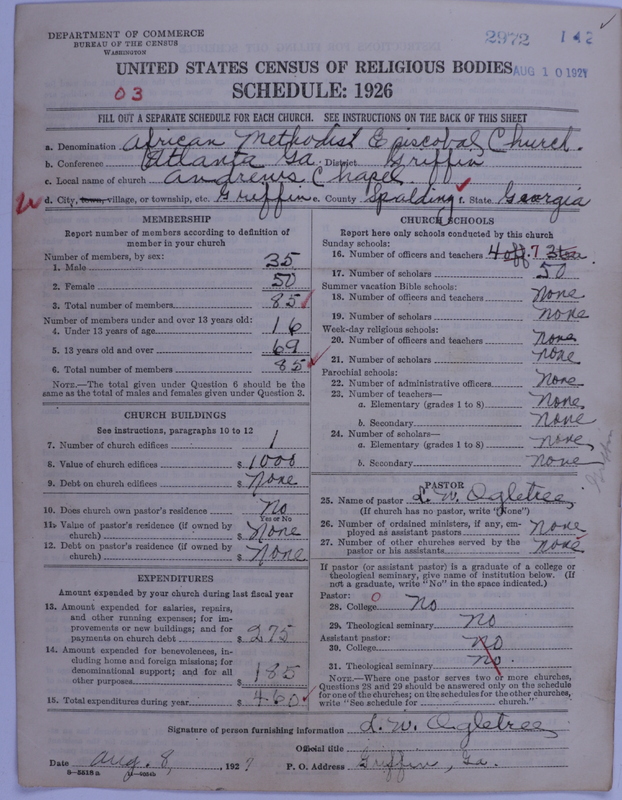 DEPARTMENT OF COMMERCE
BUREAU OF THE CENSUS
WASHINGTON
2972 142
UNITED STATES CENSUS OF RELIGIOUS BODIES
AUG 10 1927
03
SCHEDULE: 1926
FILL OUT A SEPARATE SCHEDULE FOR EACH CHURCH. SEE INSTRUCTIONS ON THE BACK OF THIS SHEET
a. Denomination African Methodist Episcopal Church.
b. Conference Atlanta Ga. District Griffin
c. Local name of church Andrews Chapel
d. City, town, village, or township, etc. Griffin e. County Spalding f. State Georgia
MEMBERSHIP
Report number of members according to definition of member in your church
Number of members, by sex:
1. Male 35
2. Female 50
3. Total number of members 85
Number of members under and over 13 years old:
4. Under 13 years of age 16
5. 13 years old and over 69
6. Total number of members 85
NOTE.—The total given under Question 6 should be
same as the total of males and females given under Question 3.
CHURCH BUILDINGS
See instructions, paragraphs 10 to 12
7. Number of church edifices 1
8. Value of church edifices $ 1000
9. Debt on church edifices $ None
10. Does church own pastor's residence No
Yes or No
11. Value of pastor's residence (if owned by
church) $ None
12. Debt on pastor's residence (if owned by
church) $ None
EXPENDITURES
Amount expended by your church during last fiscal year
13. Amount expended for salaries, repairs,
and other running expenses; for im-
provements or new buildings; and for
payments on church debt $ 275
14. Amount expended for benevolences, in-
cluding home and foreign missions; for
denominational support; and for all
other purposes $ 185
15. Total expenditures during year $ 460
CHURCH SCHOOLS
Report here only schools conducted by this church
Sunday schools:
16. Number of officers and teachers 4 off. 7 3
17. Number of scholars 50
Summer vacation Bible schools:
18. Number of officers and teachers none
19. Number of scholars none
Week-day religious schools:
20. Number of officers and teachers none
21. Number of scholars none
Parochial schools:
22. Number of administrative officers none
23. Number of teachers—
a. Elementary (grades 1 to 8) none
b. Secondary none
24. Number of scholars—
a. Elementary (grades 1 to 8) none
b. Secondary none
PASTOR
25. Name of pastor L. W. Ogletree
(If church has no pastor, write "None")
26. Number of ordained ministers, if any, em-
ployed as assistant pastors none
27. Number of other churches served by the
pastor or his assistants none
If pastor (or assistant pastor) is a graduate of a college or
theological seminary, give name of institution below. (If
not a graduate, write "No" in the space indicated.)
Pastor: 0
28. College No
29. Theological seminary No
Assistant pastor:
30. College No
31. Theological seminary No.
NOTE.—Where one pastor serves two or more churches,
Questions 28 and 29 should be answered only on the schedule
for one of the churches; on the schedules for the other churches,
write "See schedule for church."
Signature of person furnishing information L. W. Ogletree
Official title
Date Aug. 8, 1927 P. O. Address Griffin, Ga.
8-5518a